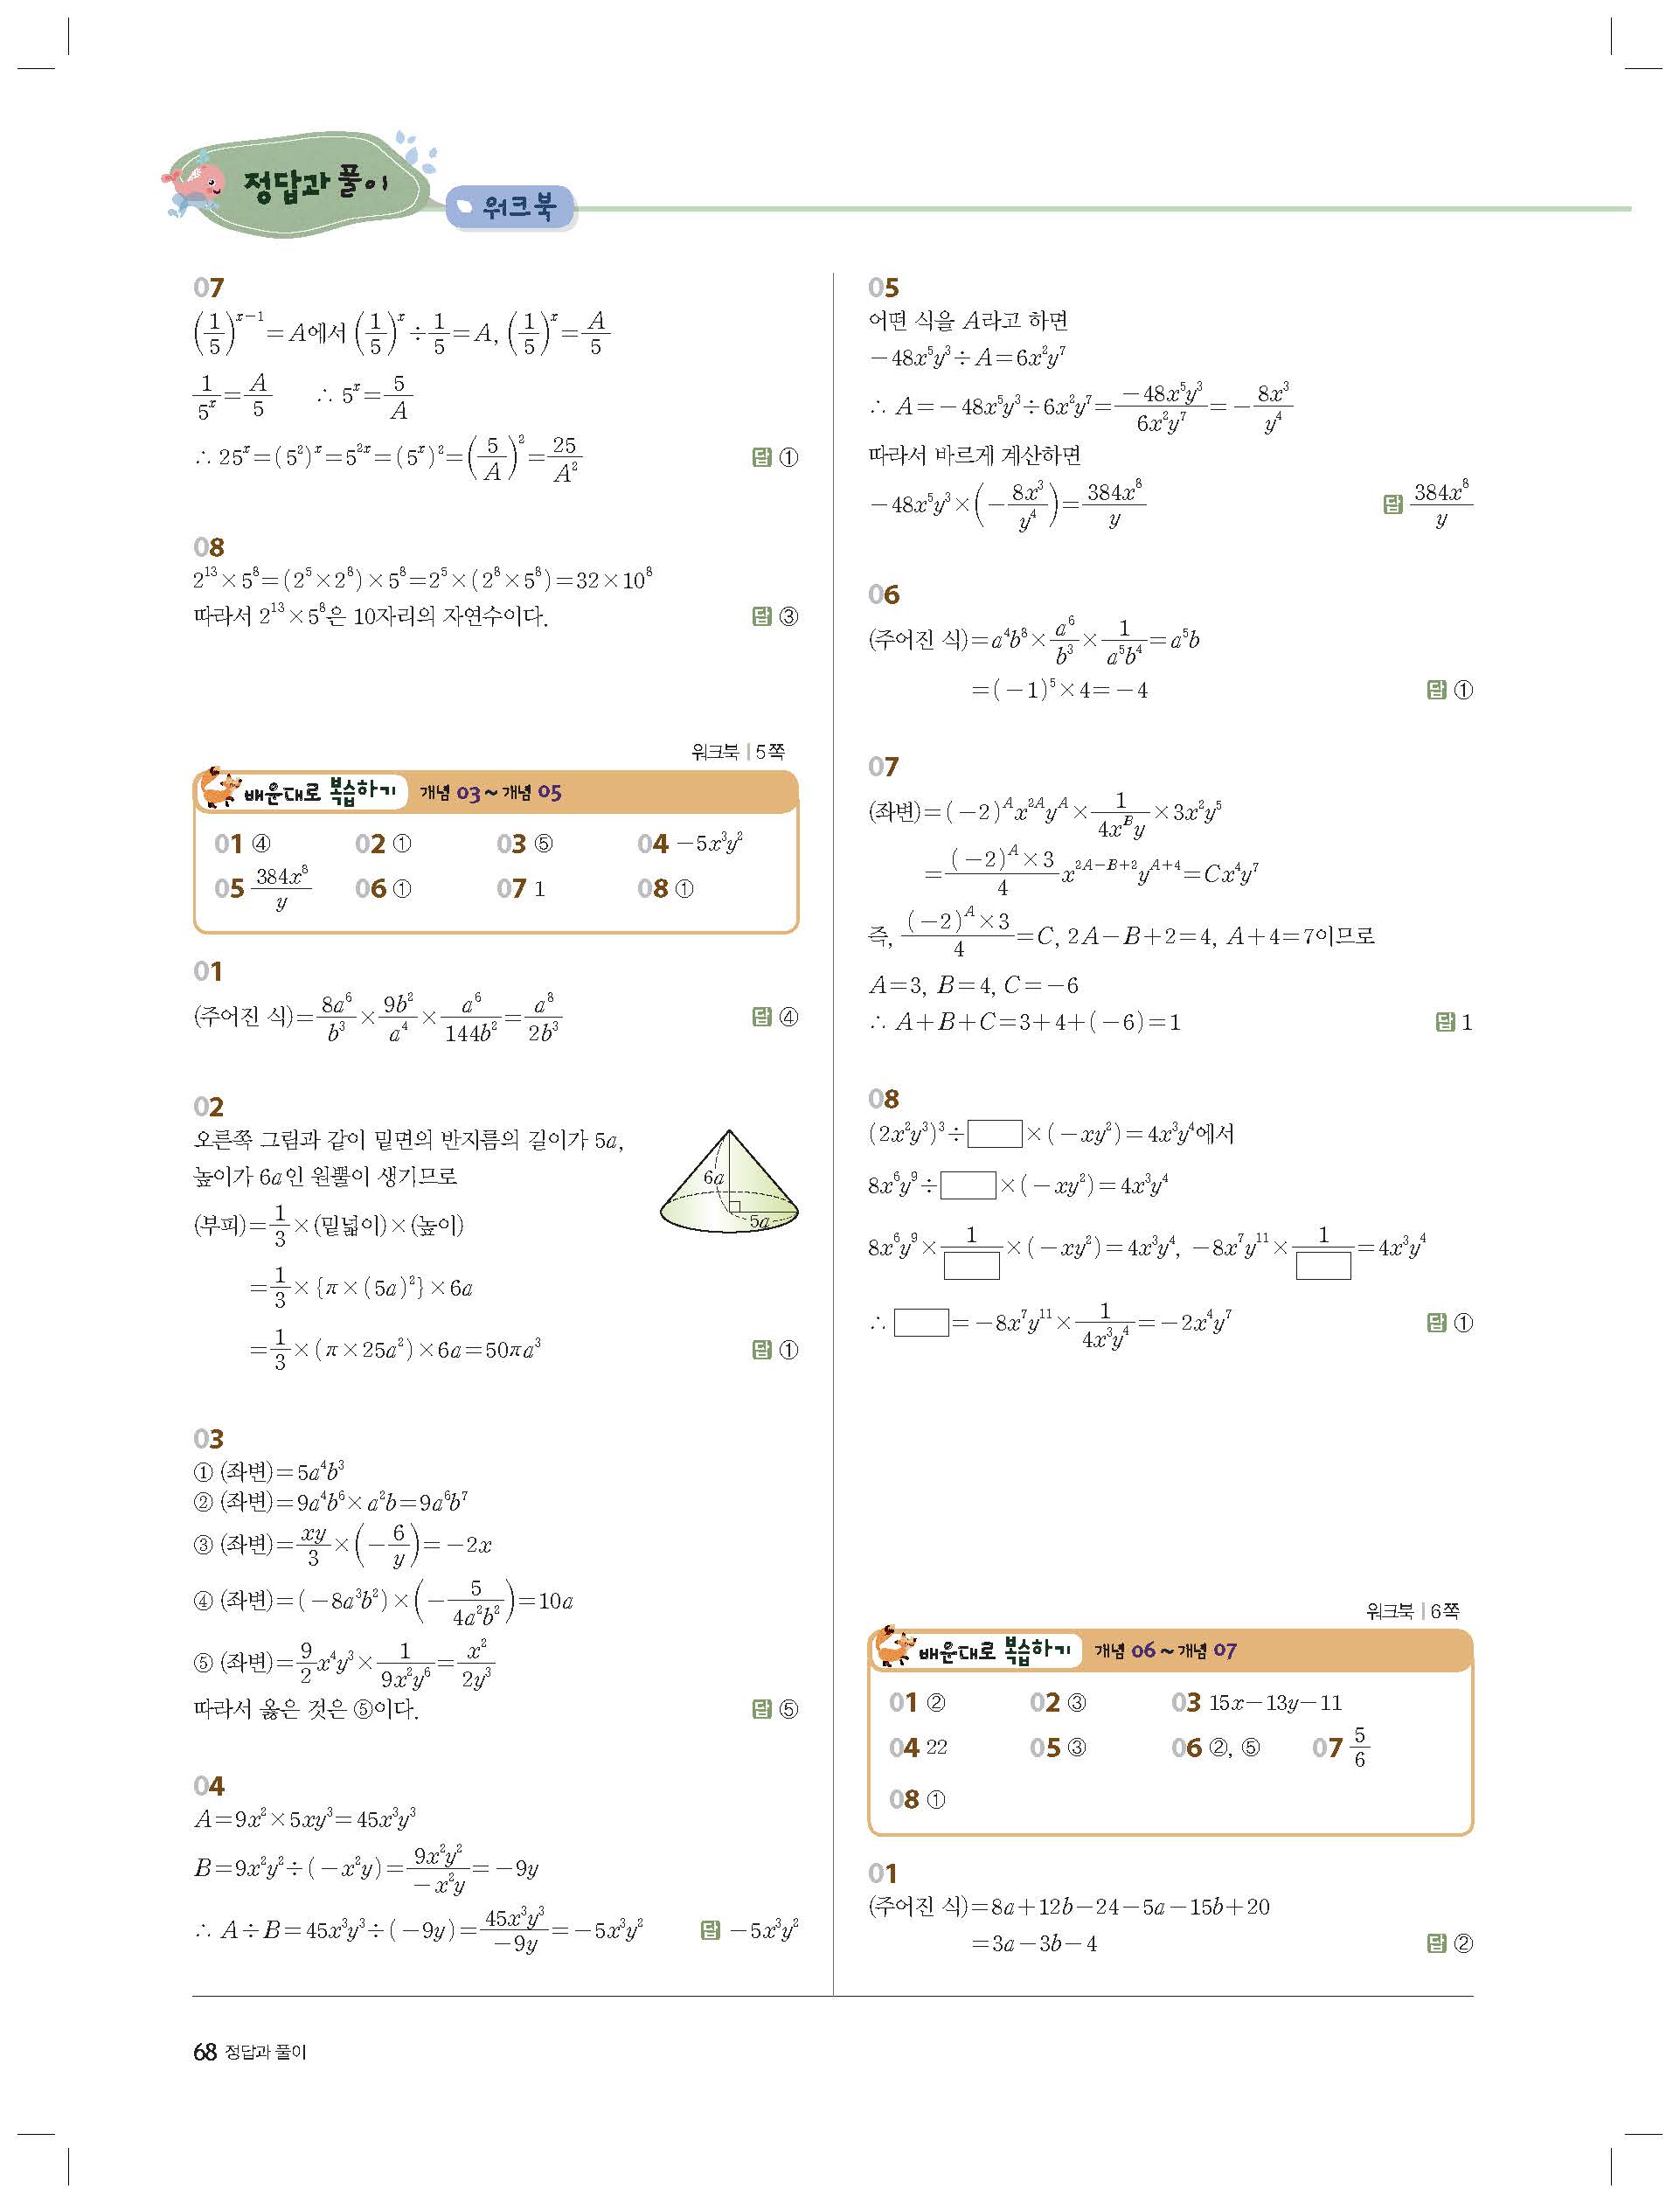 정답과 풀이
워크북
07
(1/5)^(x-1)=A에서 (1/5)^x÷1/5=A, (1/5)^x=A/5
1/5^x=A/5 ∴ 5^x=5/A
∴ 25^x=(5²)^x=5^(2x)=(5^x)²=(5/A)²=25/A² 답 ①
08
2¹³×5⁸=(2⁵×2⁸)×5⁸=2⁵×(2⁸×5⁸)=32×10⁸
따라서 2¹³×5⁸은 10자리의 자연수이다. 답 ③
워크북 | 5쪽
배운대로 복습하기 개념 03~개념 05
01 ④ 02 ① 03 ⑤ 04 -5x³y²
05 384x⁸/y 06 ① 07 1 08 ①
01
(주어진 식)=8a⁶/b³×9b²/a⁴×a⁶/144b²=a⁸/2b³ 답 ④
02
오른쪽 그림과 같이 밑면의 반지름의 길이가 5a,
높이가 6a인 원뿔이 생기므로
(부피)=1/3×(밑넓이)×(높이)
=1/3×{π×(5a)²}×6a
=1/3×(π×25a²)×6a=50πa³ 답 ①
6a
5a
03
① (좌변)=5a⁴b³
② (좌변)=9a⁴b⁶×a²b=9a⁶b⁷
③ (좌변)=xy/3×(-6/y)=-2x
④ (좌변)=(-8a³b²)×(-5/4a²b²)=10a
⑤ (좌변)=9/2x⁴y³×1/9x²y⁶=x²/2y³
따라서 옳은 것은 ⑤이다. 답 ⑤
04
A=9x²×5xy³=45x³y³
B=9x²y²÷(-x²y)=9x²y²/-x²y=-9y
∴ A÷B=45x³y³÷(-9y)=45x³y³/-9y=-5x³y² 답 -5x³y²
05
어떤 식을 A라고 하면
-48x⁵y³÷A=6x²y⁷
∴ A=-48x⁵y³÷6x²y⁷=-48x⁵y³/6x²y⁷=-8x³/y⁴
따라서 바르게 계산하면
-48x⁵y³×(-8x³/y⁴)=384x⁸/y 답 384x⁸/y
06
(주어진 식)=a⁴b⁸×a⁶/b³×1/a⁵b⁴=a⁵b
=(-1)⁵×4=-4 답 ①
07
(좌변)=(-2)^A x^(2A) y^A×1/4x^B y×3x²y⁵
=(-2)^A×3/4 x^(2A-B+2) y^(A+4)=Cx⁴y⁷
즉, (-2)^A×3/4=C, 2A-B+2=4, A+4=7이므로
A=3, B=4, C=-6
∴ A+B+C=3+4+(-6)=1 답 1
08
(2x²y³)³÷□×(-xy²)=4x³y⁴에서
8x⁶y⁹÷□×(-xy²)=4x³y⁴
8x⁶y⁹×1/□×(-xy²)=4x³y⁴, -8x⁷y¹¹×1/□=4x³y⁴
∴ □=-8x⁷y¹¹×1/4x³y⁴=-2x⁴y⁷ 답 ①
워크북 | 6쪽
배운대로 복습하기 개념 06~개념 07
01 ② 02 ③ 03 15x-13y-11
04 22 05 ③ 06 ②, ⑤ 07 5/6
08 ①
01
(주어진 식)=8a+12b-24-5a-15b+20
=3a-3b-4 답 ②
68 정답과 풀이